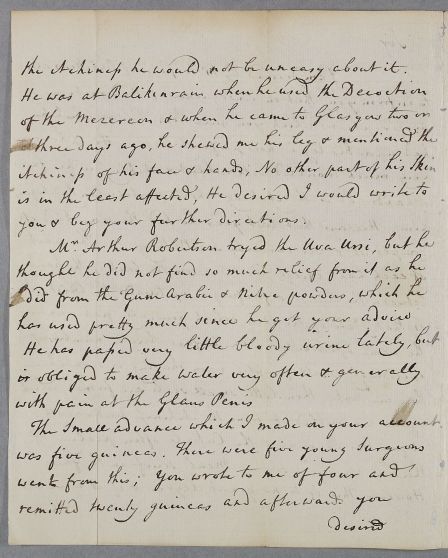 the itchiness he would not be uneasy about it.
He was at Balikinrain when he used the Decoction
of the Mezereon & when he came to Glasgow two or
three days ago, he shewed me his leg & mentioned the
itchiness of his face & hands, No other part of his Skin
is in the least affected, He desired I would write to
you & beg your further directions.
Mr. Arthur Robertson tryed the Uva Ursi, but he
thought he did not find so much relief from it as he
did from the Gum Arabic & Nitre powders, which he
has used pretty much since he got your advice
He has passed very little bloody urine lately, but
is obliged to make water very often & generally
with pain at the Glans Penis
The Small advance which I made on your account
was five guineas. There were five young Surgeons
went from this; you wrote to me of four and
remitted twenty guineas and afterwards you
desired